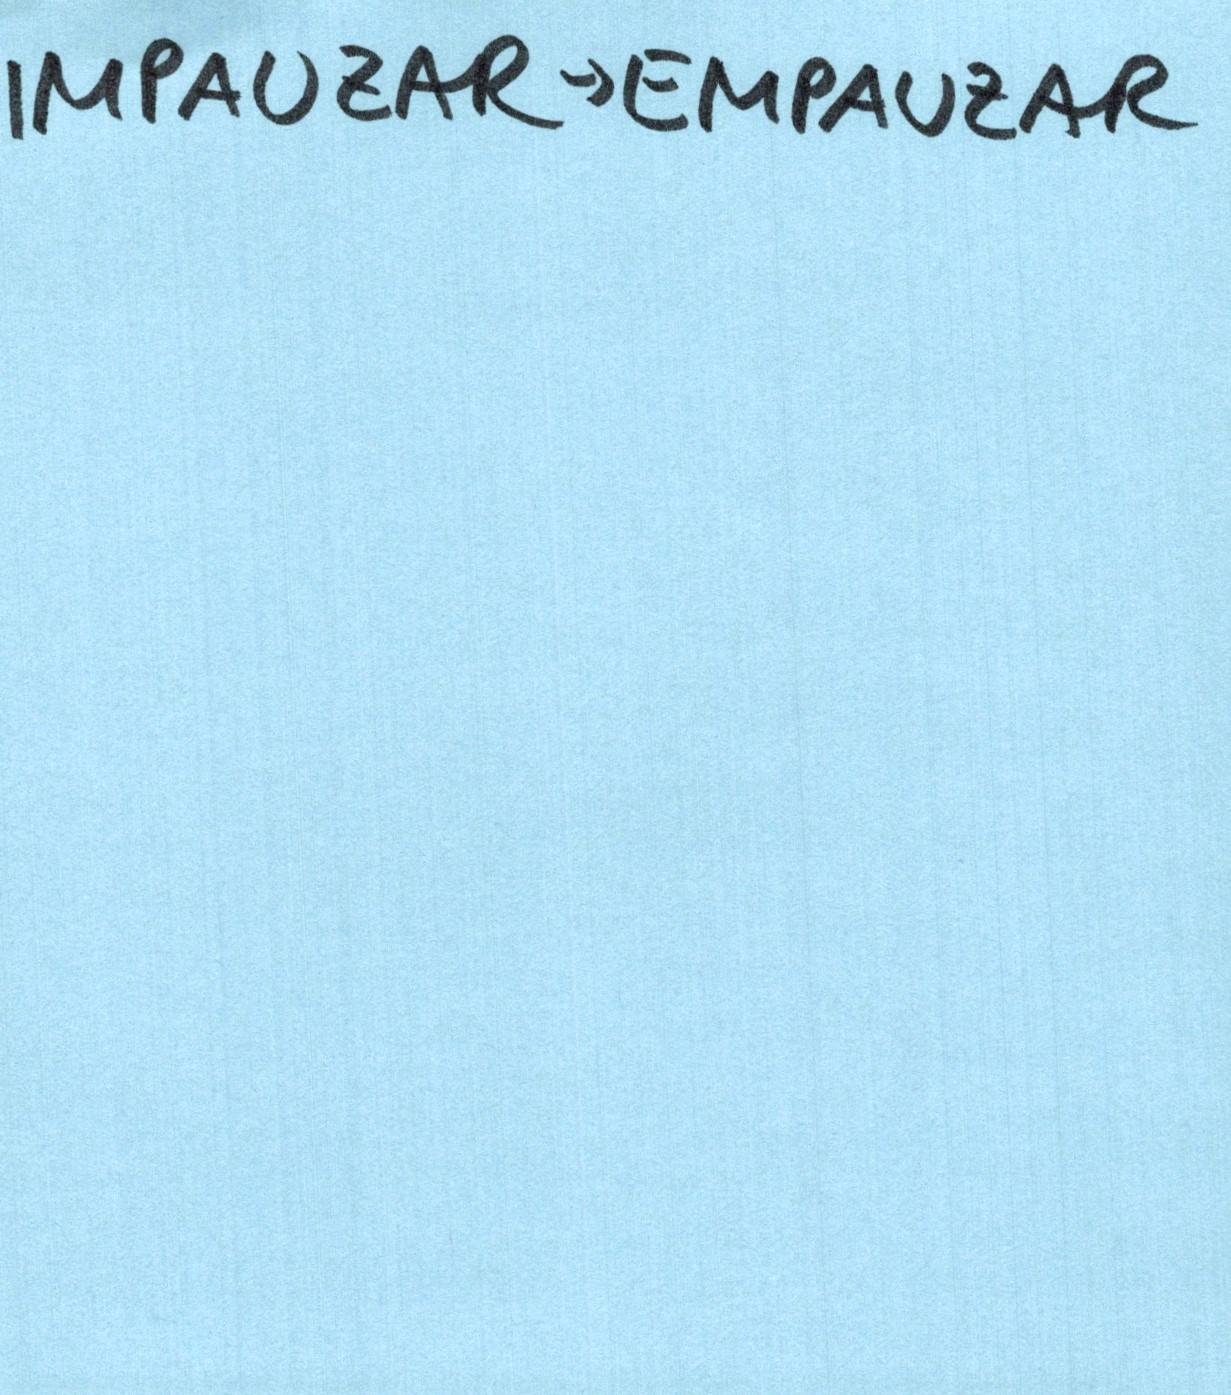 IMPAUZAR → EMPAUZAR